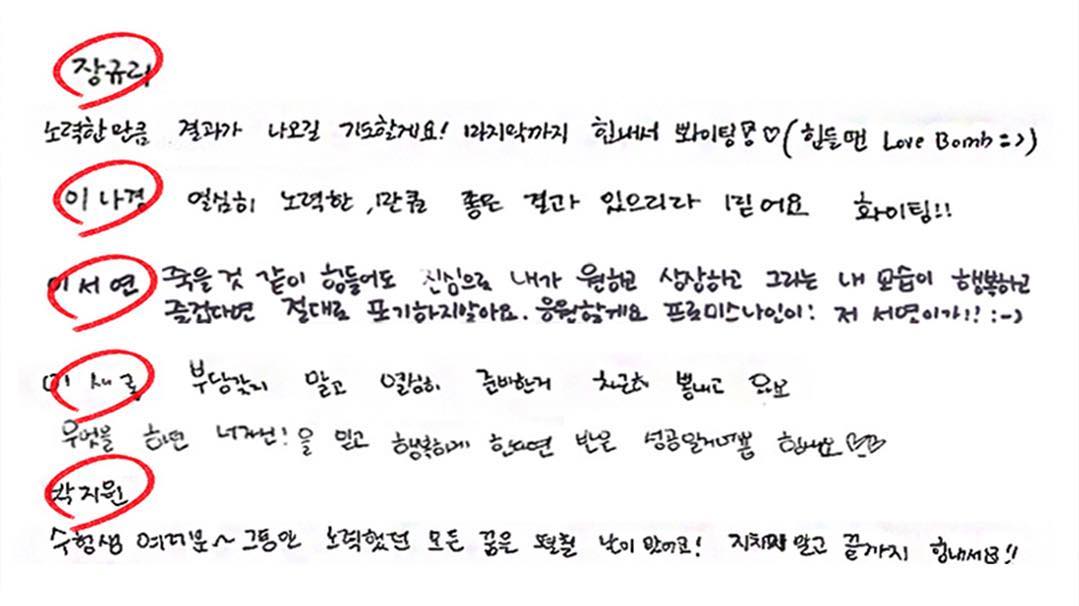 장규리
노력한만큼 결과가 나오길 기도할게요! 마지막까지 힘내서 뽜이팅 ♡ (힘들땐 Love Bomb =>)
이나경 열심히 노력한 만큼 좋은 결과 있으리라 믿어요 화이팅!!
이서연 죽을 것 같이 힘들어도 진심으로 내가 원하고 상상하고 그리는 내 모습이 행복하고
즐겁다면 절대로 포기하지말아요. 응원할게요 프로미스나인이! 저 서연이가!! :-)
이새롬 부담갖지 말고 열심히 준비한거 차근히 뽐내고 오요
무엇을 하던 너자신!을 믿고 행복하게 한다면 반은 성공일거예요 힘내요 ♡♡
박지원
수험생 여러분~ 그동안 노력했던 모든 꿈을 펼칠 날이 왔어요! 지치지 말고 끝까지 힘내세요!!